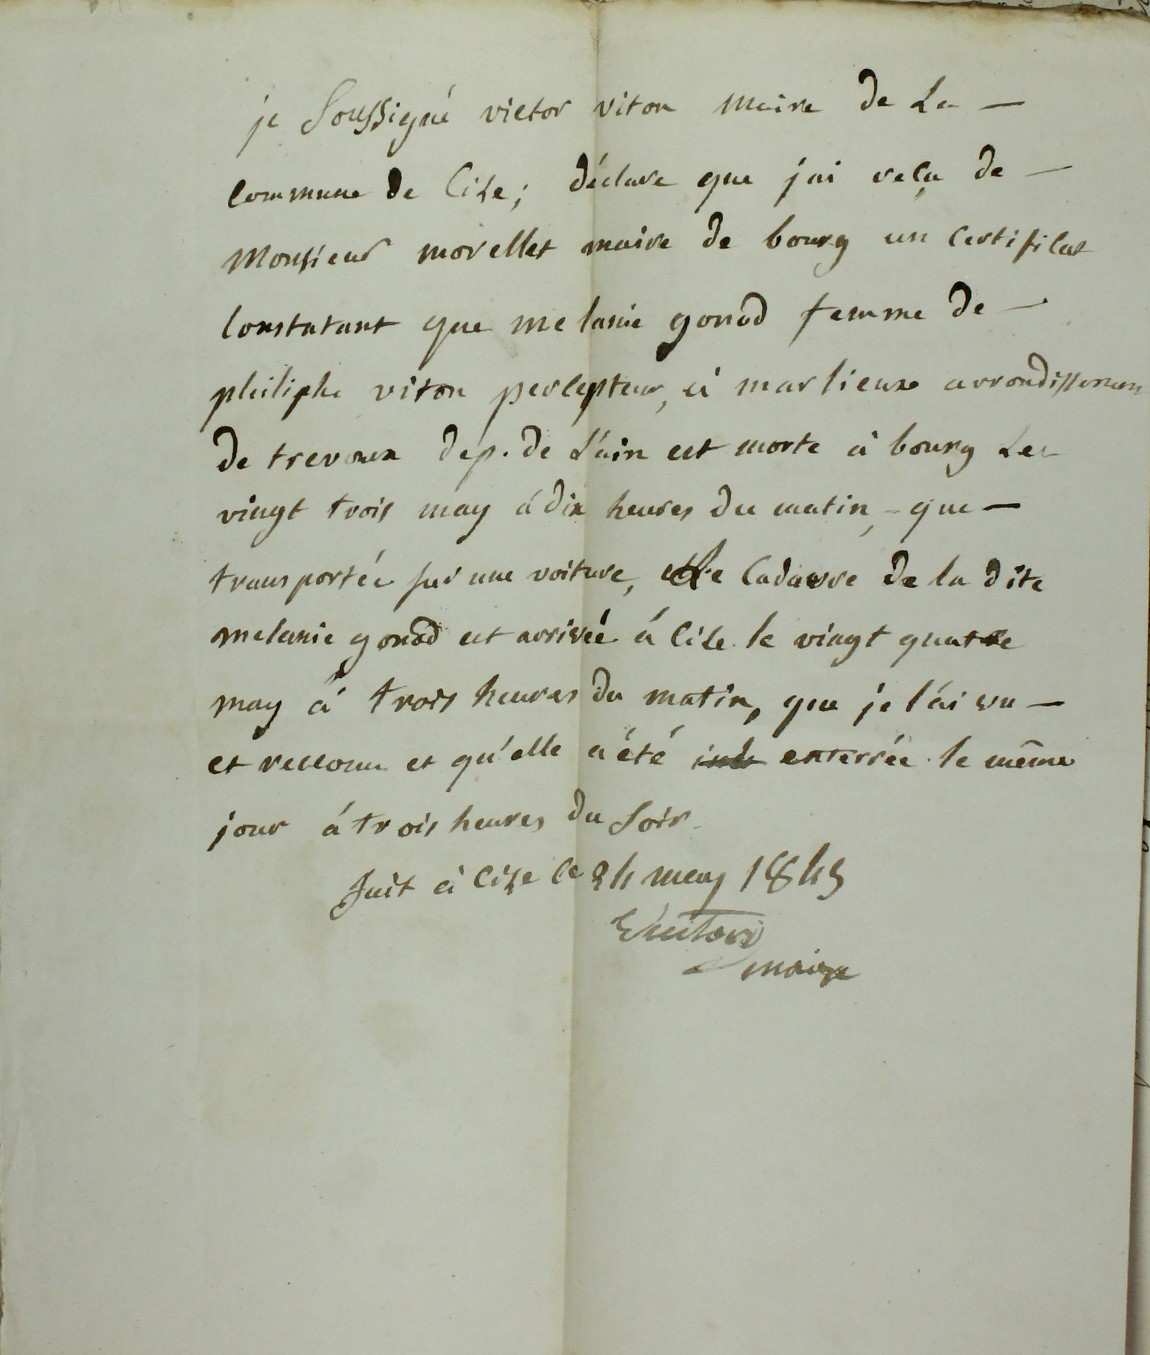 je soussigné victor viton maire de la —
commune de Cize; déclare que j'ai reçu de —
Monsieur morellet maire de bourg un certificat
constatant que melanie gonod femme de —
philiphe viton percepteur, à marlieux arrondissemen
de trevoux dep. de L'ain est morte à bourg Le
vingt trois may à dix heures du matin, - que —
transportée sur une voiture, Le Cadavre de la dite
melanie gonod est arrivée à Cize le vingt quatre
may à trois heures du matin, que je l'ai vu —
et reconnu et qu'elle a été enterrée le même
jour à trois heures du soir.
fait à Cize le 24 may 1845
maire